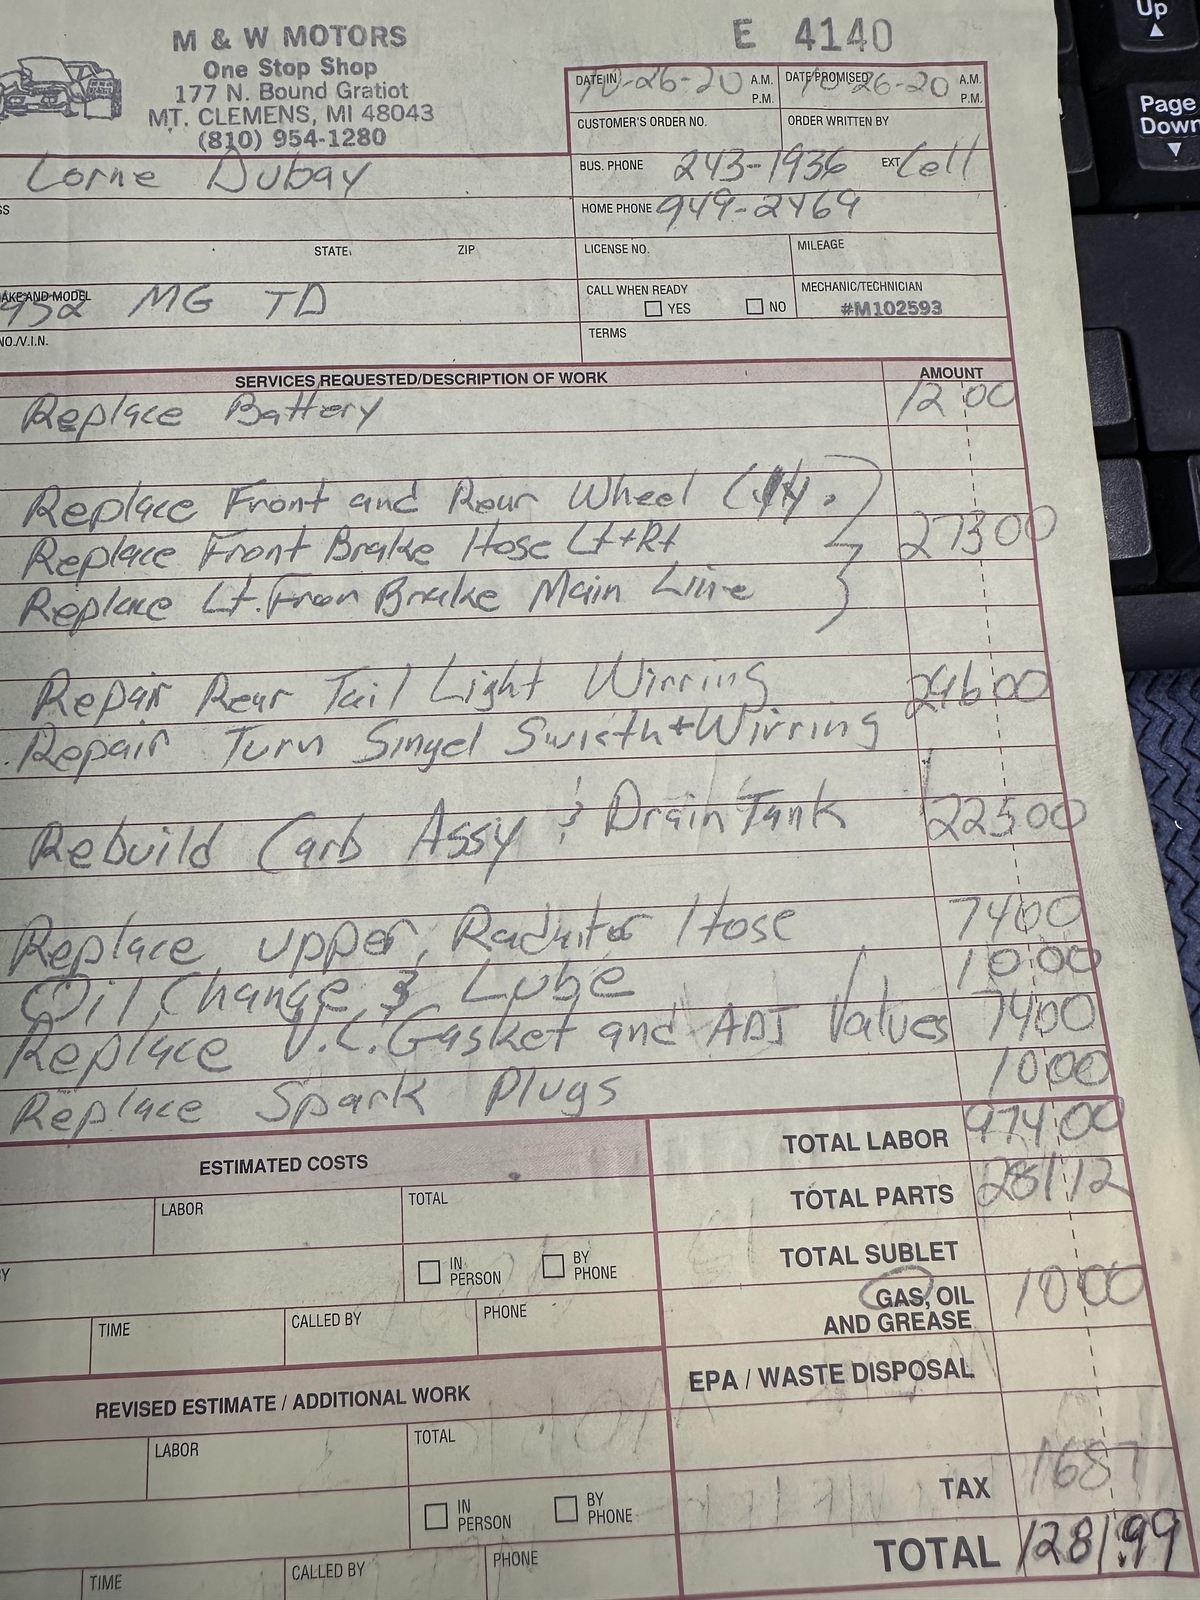 M & W MOTORS
One Stop Shop
177 N. Bound Gratiot
MT. CLEMENS, MI 48043
(810) 954-1280
E 4140
DATE IN 10-26-20 A.M. P.M.
DATE PROMISED 10-26-20 A.M. P.M.
CUSTOMER'S ORDER NO. ORDER WRITTEN BY
Lorne Dubay
BUS. PHONE 243-1936 EXT Cell
HOME PHONE 949-2469
STATE ZIP
LICENSE NO. MILEAGE
AKE AND MODEL
952 MG TD
CALL WHEN READY
YES NO
MECHANIC/TECHNICIAN
#M102593
NO./V.I.N.
TERMS
SERVICES REQUESTED/DESCRIPTION OF WORK AMOUNT
Replace Battery 12 00
Replace Front and Rear Wheel Cyl.
Replace Front Brake Hose Lt+Rt 273 00
Replace Lt. Fron Brake Main Line
Repair Rear Tail Light Wirring 296 00
Repair Turn Singel Swicth+Wirring
Rebuild Carb Assy & Drain Tank 225 00
Replace upper Radiator Hose 74 00
Oil Change & Lube 10 00
Replace V.C. Gasket and ADJ Valves 74 00
Replace Spark Plugs 10 00
ESTIMATED COSTS
LABOR TOTAL
IN PERSON BY PHONE
TIME CALLED BY PHONE
TOTAL LABOR 974 00
TOTAL PARTS 281 12
TOTAL SUBLET
GAS, OIL AND GREASE 10 00
EPA / WASTE DISPOSAL
REVISED ESTIMATE / ADDITIONAL WORK
LABOR TOTAL
IN PERSON BY PHONE
TIME CALLED BY PHONE
TAX 16 87
TOTAL 1281.99
Up
Page Down